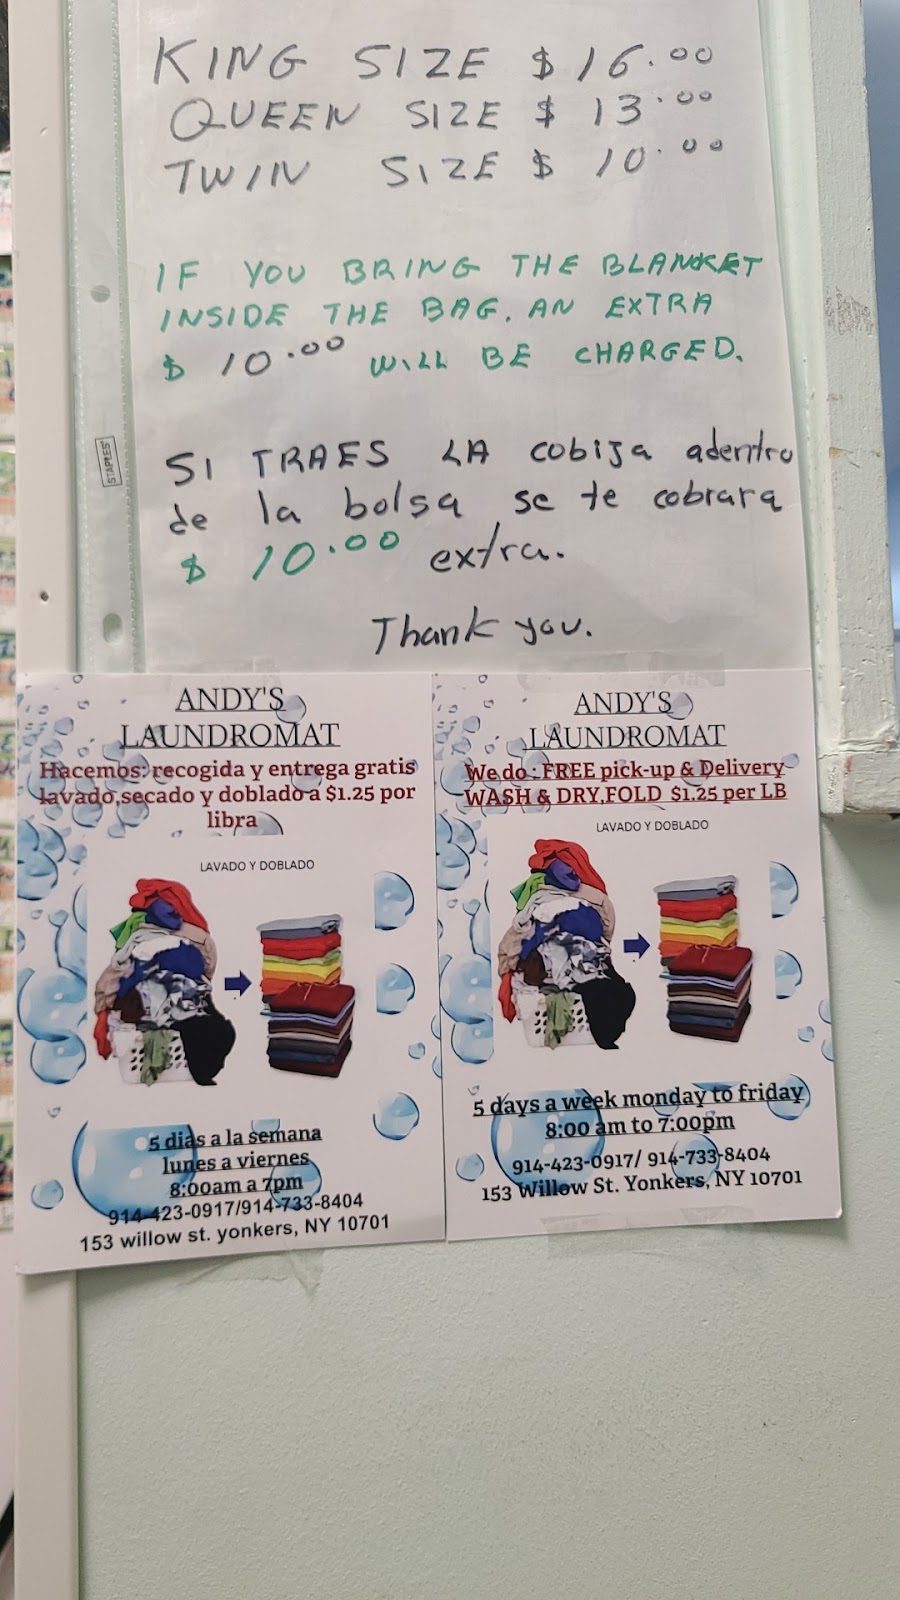 KING SIZE $16.00
QUEEN SIZE $ 13.00
TWIN SIZE $ 10.00
IF YOU BRING THE BLANKET
INSIDE THE BAG. AN EXTRA
$ 10.00 WILL BE CHARGED.
SI TRAES LA cobija adentro
de la bolsa se te cobrara
$ 10.00 extra.
Thank you.
STAPLES
ANDY'S
LAUNDROMAT
Hacemos: recogida y entrega gratis
lavado,secado y doblado a $1.25 por
libra
LAVADO Y DOBLADO
5 dias a la semana
lunes a viernes
8:00am a 7pm
914-423-0917/914-733-8404
153 willow st. yonkers, NY 10701
ANDY'S
LAUNDROMAT
We do : FREE pick-up & Delivery
WASH & DRY,FOLD $1.25 per LB
LAVADO Y DOBLADO
5 days a week monday to friday
8:00 am to 7:00pm
914-423-0917/ 914-733-8404
153 Willow St. Yonkers, NY 10701